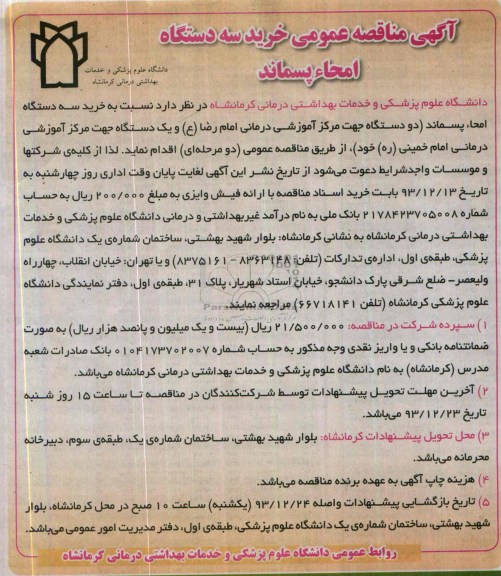 آگهی مناقصه عمومی خرید سه دستگاه
امحاء پسماند
دانشگاه علوم پزشکی و خدمات
بهداشتی درمانی کرمانشاه
دانشگاه علوم پزشکی و خدمات بهداشتی درمانی کرمانشاه در نظر دارد نسبت به خرید سه دستگاه
امحاء پسماند (دو دستگاه جهت مرکز آموزشی درمانی امام رضا (ع) و یک دستگاه جهت مرکز آموزشی
درمانی امام خمینی (ره) خود)، از طریق مناقصه عمومی (دو مرحله‌ای) اقدام نماید. لذا از کلیه‌ی شرکتها
و موسسات واجدشرایط دعوت می‌شود از تاریخ نشر این آگهی لغایت پایان وقت اداری روز چهارشنبه به
تاریخ ۹۳/۱۲/۱۳ بابت خرید اسناد مناقصه با ارائه فیش واریزی به مبلغ ۲۰۰/۰۰۰ ریال به حساب
شماره ۲۱۷۸۴۲۳۷۰۵۰۰۸ بانک ملی به نام درآمد غیربهداشتی و درمانی دانشگاه علوم پزشکی و خدمات
بهداشتی درمانی کرمانشاه به نشانی کرمانشاه: بلوار شهید بهشتی، ساختمان شماره‌ی یک دانشگاه علوم
پزشکی، طبقه‌ی اول، اداره‌ی تدارکات (تلفن: ۸۳۶۳۱۴۸ - ۸۳۷۵۱۶۱) و یا تهران: خیابان انقلاب، چهارراه
ولیعصر- ضلع شرقی پارک دانشجو، خیابان استاد شهریار، پلاک ۳۱، طبقه‌ی اول، دفتر نمایندگی دانشگاه
علوم پزشکی کرمانشاه (تلفن ۶۶۷۱۸۱۴۱) مراجعه نمایند.
۱) سپرده شرکت در مناقصه: ۲۱/۵۰۰/۰۰۰ ریال (بیست و یک میلیون و پانصد هزار ریال) به صورت
ضمانتنامه بانکی و یا واریز نقدی وجه مذکور به حساب شماره ۰۱۰۴۱۷۳۷۰۲۰۰۷ بانک صادرات شعبه
مدرس (کرمانشاه) به نام دانشگاه علوم پزشکی و خدمات بهداشتی درمانی کرمانشاه می‌باشد.
۲) آخرین مهلت تحویل پیشنهادات توسط شرکت‌کنندگان در مناقصه تا ساعت ۱۵ روز شنبه
تاریخ ۹۳/۱۲/۲۳ می‌باشد.
۳) محل تحویل پیشنهادات کرمانشاه: بلوار شهید بهشتی، ساختمان شماره‌ی یک، طبقه‌ی سوم، دبیرخانه
محرمانه می‌باشد.
۴) هزینه چاپ آگهی به عهده برنده مناقصه می‌باشد.
۵) تاریخ بازگشایی پیشنهادات واصله ۹۳/۱۲/۲۴ (یکشنبه) ساعت ۱۰ صبح در محل کرمانشاه، بلوار
شهید بهشتی، ساختمان شماره‌ی یک دانشگاه علوم پزشکی، طبقه‌ی اول، دفتر مدیریت امور عمومی می‌باشد.
روابط عمومی دانشگاه علوم پزشکی و خدمات بهداشتی درمانی کرمانشاه